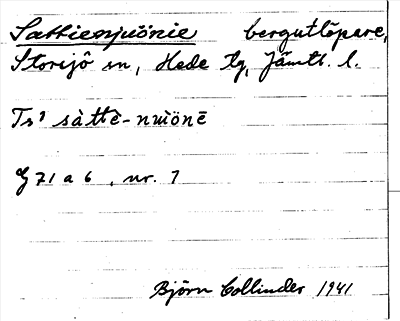 Sattiesnjuönie bergutlöpare,
Storsjö sn, Hede tg, Jämtl. l.
Ts² sàttē-nṷiönē
G 71 a 6, nr. 7
Björn Collinder 1941